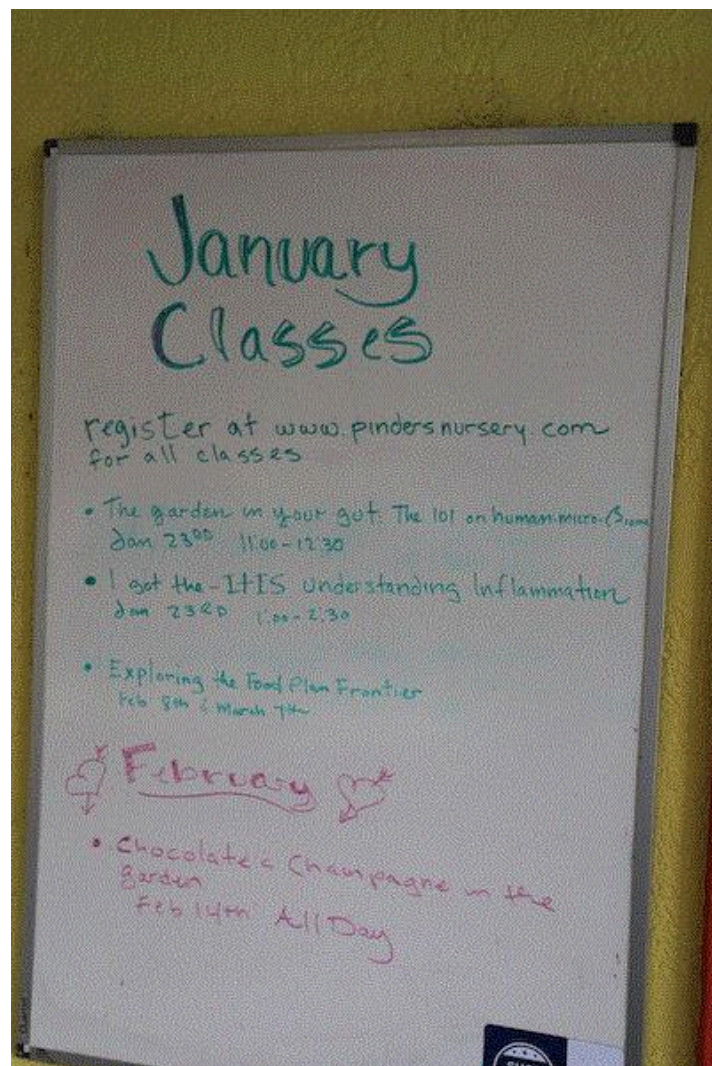 January
Classes
register at www.pindersnursery.com
for all classes
• The garden in your gut: The 101 on human-micro-Biome
Jan 23RD 11:00-12:30
• I got the -ItIS understanding Inflammation
Jan 23RD 1:00-2:30
• Exploring the Food Plan Frontier
Feb 8th & March 7th
February
• Chocolate & Champagne in the
garden
Feb 14th All Day